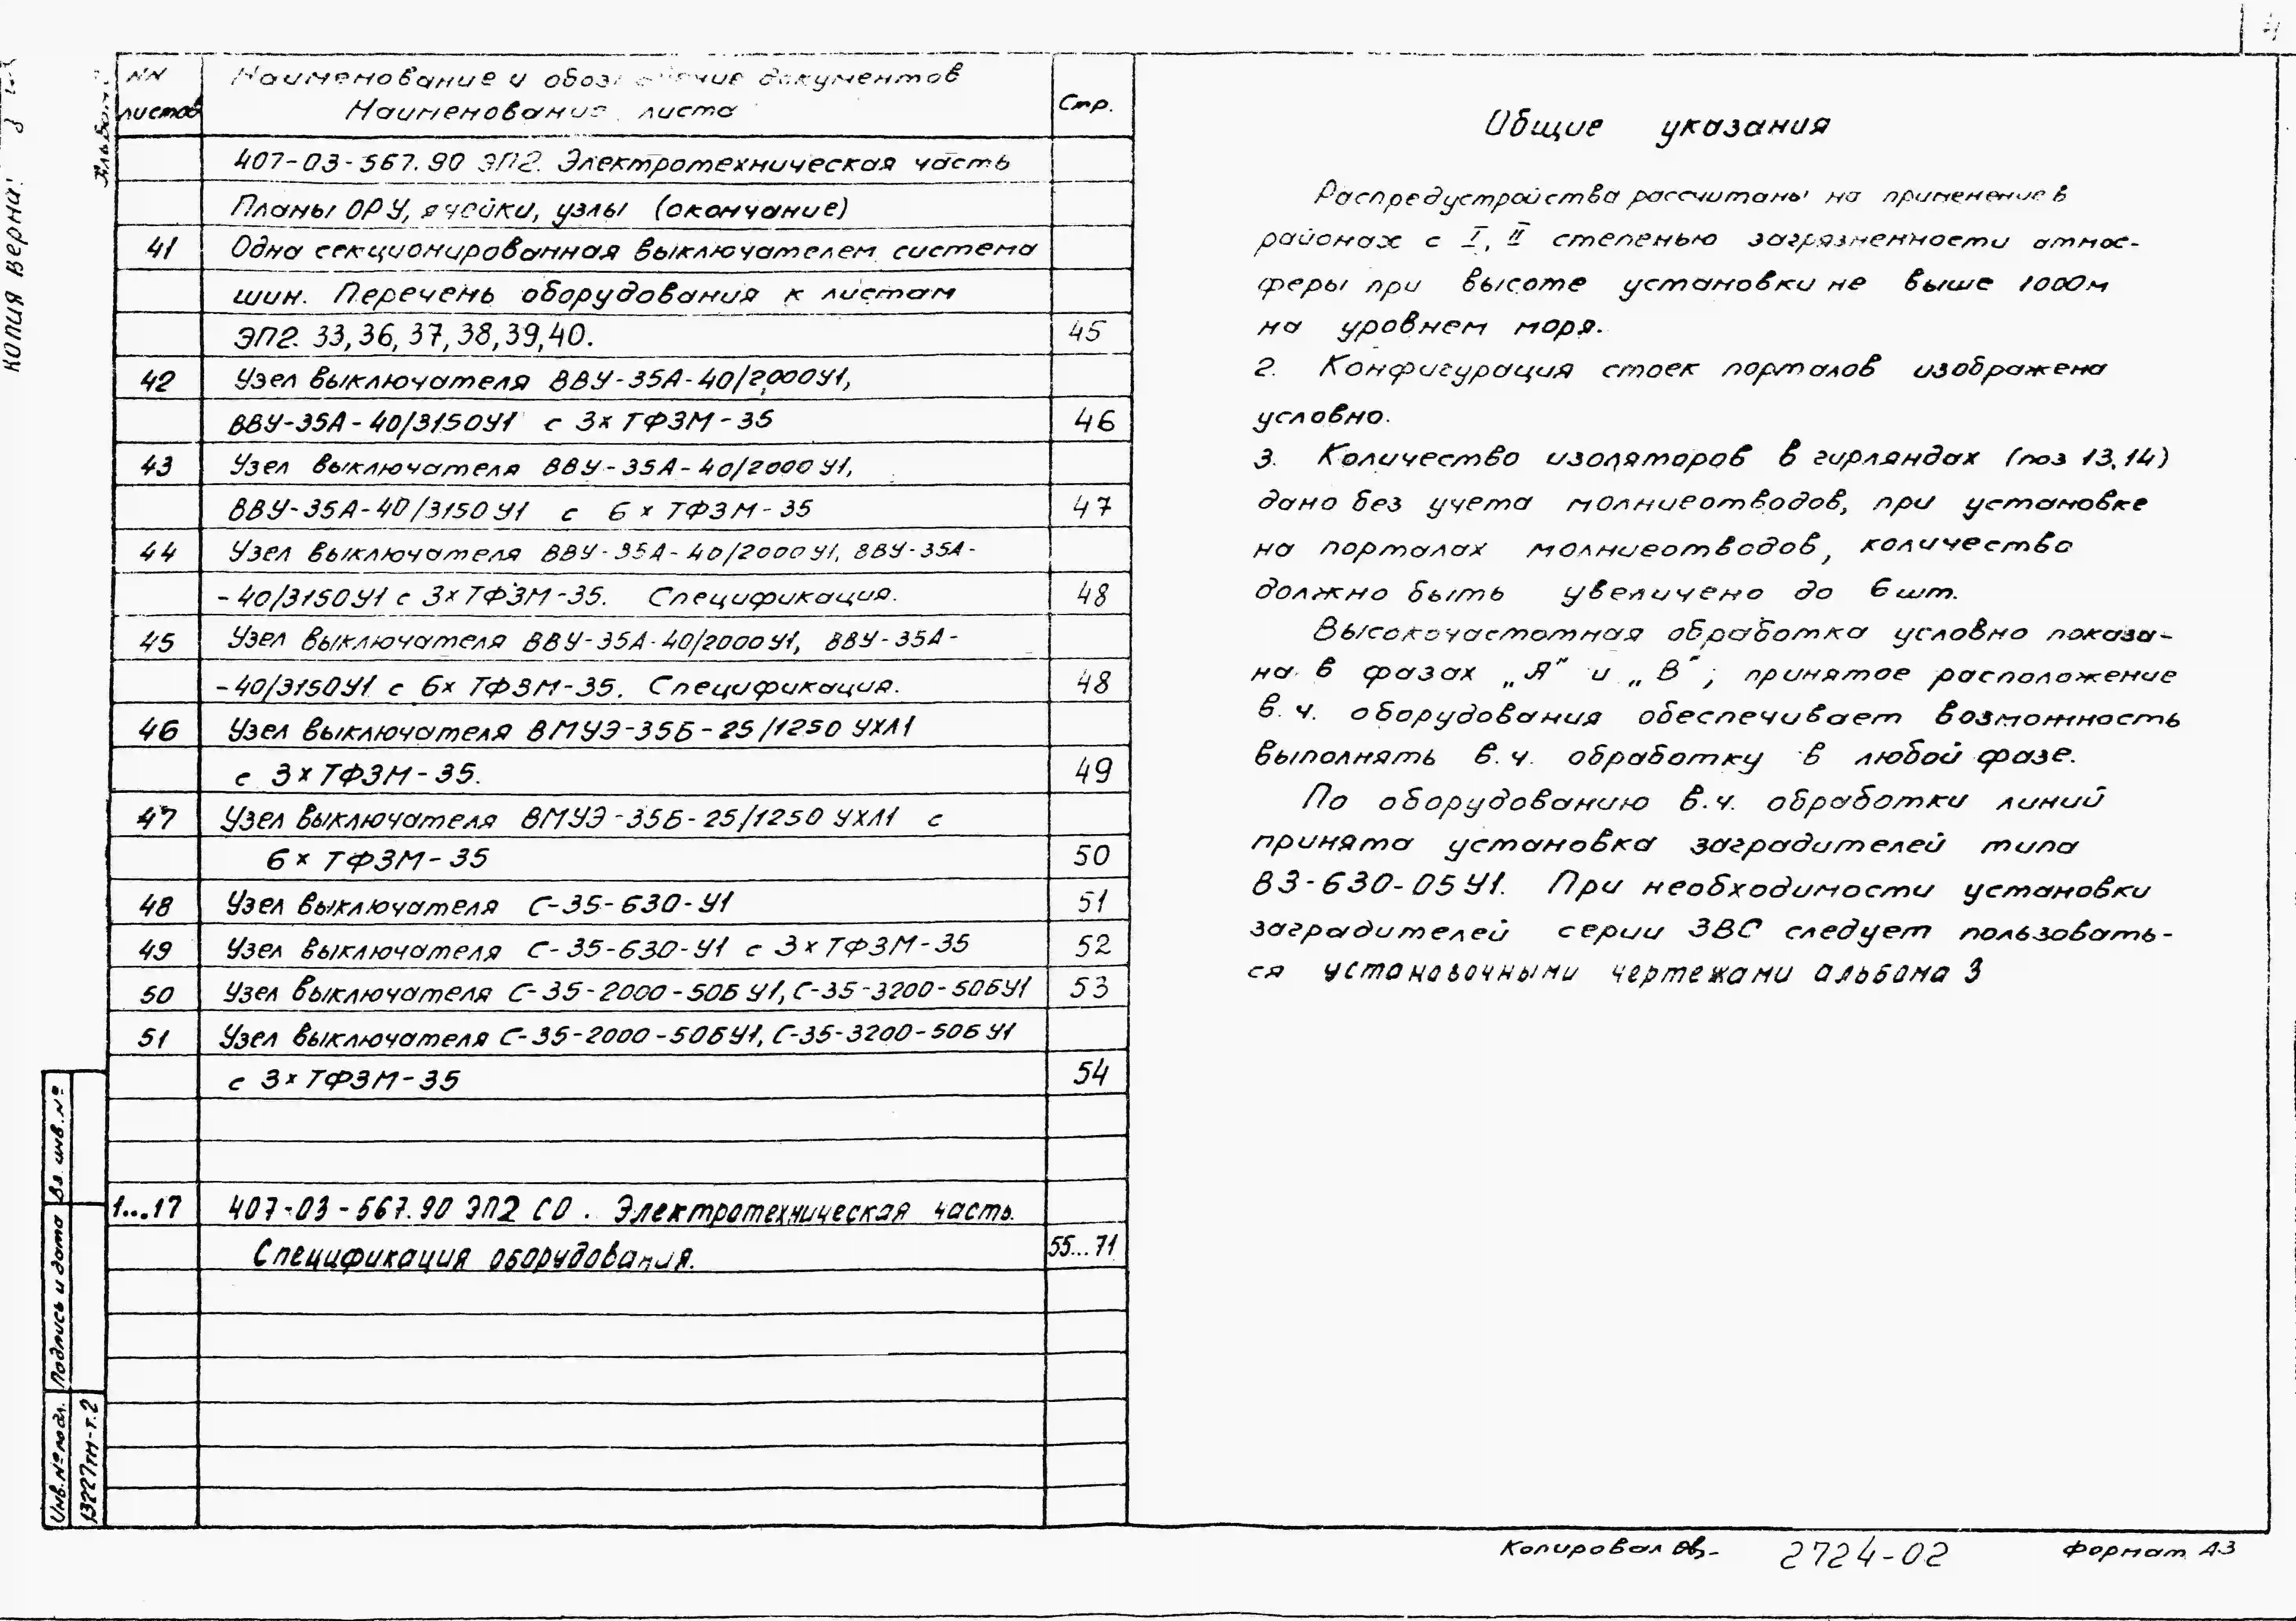 4
NN
листов
Наименование и обозначение документов
Наименование листа
Стр.
407-03-567.90 ЭП2. Электротехническая часть
Планы ОРУ, ячейки, узлы (окончание)
41 Одна секционированная выключателем система
шин. Перечень оборудования к листам
ЭП2. 33,36,37,38,39,40. 45
42 Узел выключателя ВВУ-35А-40/2000У1,
ВВУ-35А-40/3150У1 с 3х ТФЗМ-35 46
43 Узел выключателя ВВУ-35А-40/2000У1,
ВВУ-35А-40/3150У1 с 6х ТФЗМ-35 47
44 Узел выключателя ВВУ-35А-40/2000У1, ВВУ-35А-
-40/3150У1 с 3хТФЗМ-35. Спецификация. 48
45 Узел выключателя ВВУ-35А-40/2000У1, ВВУ-35А-
-40/3150У1 с 6х ТФЗМ-35. Спецификация. 48
46 Узел выключателя ВМУЭ-35Б-25/1250 УХЛ1
с 3хТФЗМ-35. 49
47 Узел выключателя ВМУЭ-35Б-25/1250 УХЛ1 с
6х ТФЗМ-35 50
48 Узел выключателя С-35-630-У1 51
49 Узел выключателя С-35-630-У1 с 3хТФЗМ-35 52
50 Узел выключателя С-35-2000-50Б У1, С-35-3200-50БУ1 53
51 Узел выключателя С-35-2000-50БУ1, С-35-3200-50Б У1
с 3хТФЗМ-35 54
1...17 407-03-567.90 ЭП2 СО. Электротехническая часть.
Спецификация оборудования. 55...71
Общие указания
Распредустройства рассчитаны на применение в
районах с I, II степенью загрязненности атмос-
феры при высоте установки не выше 1000м
на уровнем моря.
2. Конфигурация стоек порталов изображена
условно.
3. Количество изоляторов в гирляндах (поз 13,14)
дано без учета молниеотводов, при установке
на порталах молниеотводов, количество
должно быть увеличено до 6шт.
Высокочастотная обработка условно показа-
на в фазах „А" и „В"; принятое расположение
в.ч. оборудования обеспечивает возможность
выполнять в.ч. обработку в любой фазе.
По оборудованию в.ч. обработки линий
принята установка заградителей типа
ВЗ-630-05У1. При необходимости установки
заградителей серии ЗВС следует пользовать-
ся установочными чертежами альбома 3
копия верна:
Альбом
Вз. инв.№
Подпись и дата
Инв.№подл.
13227тм-т.2
Копировал
2724-02
Формат А3